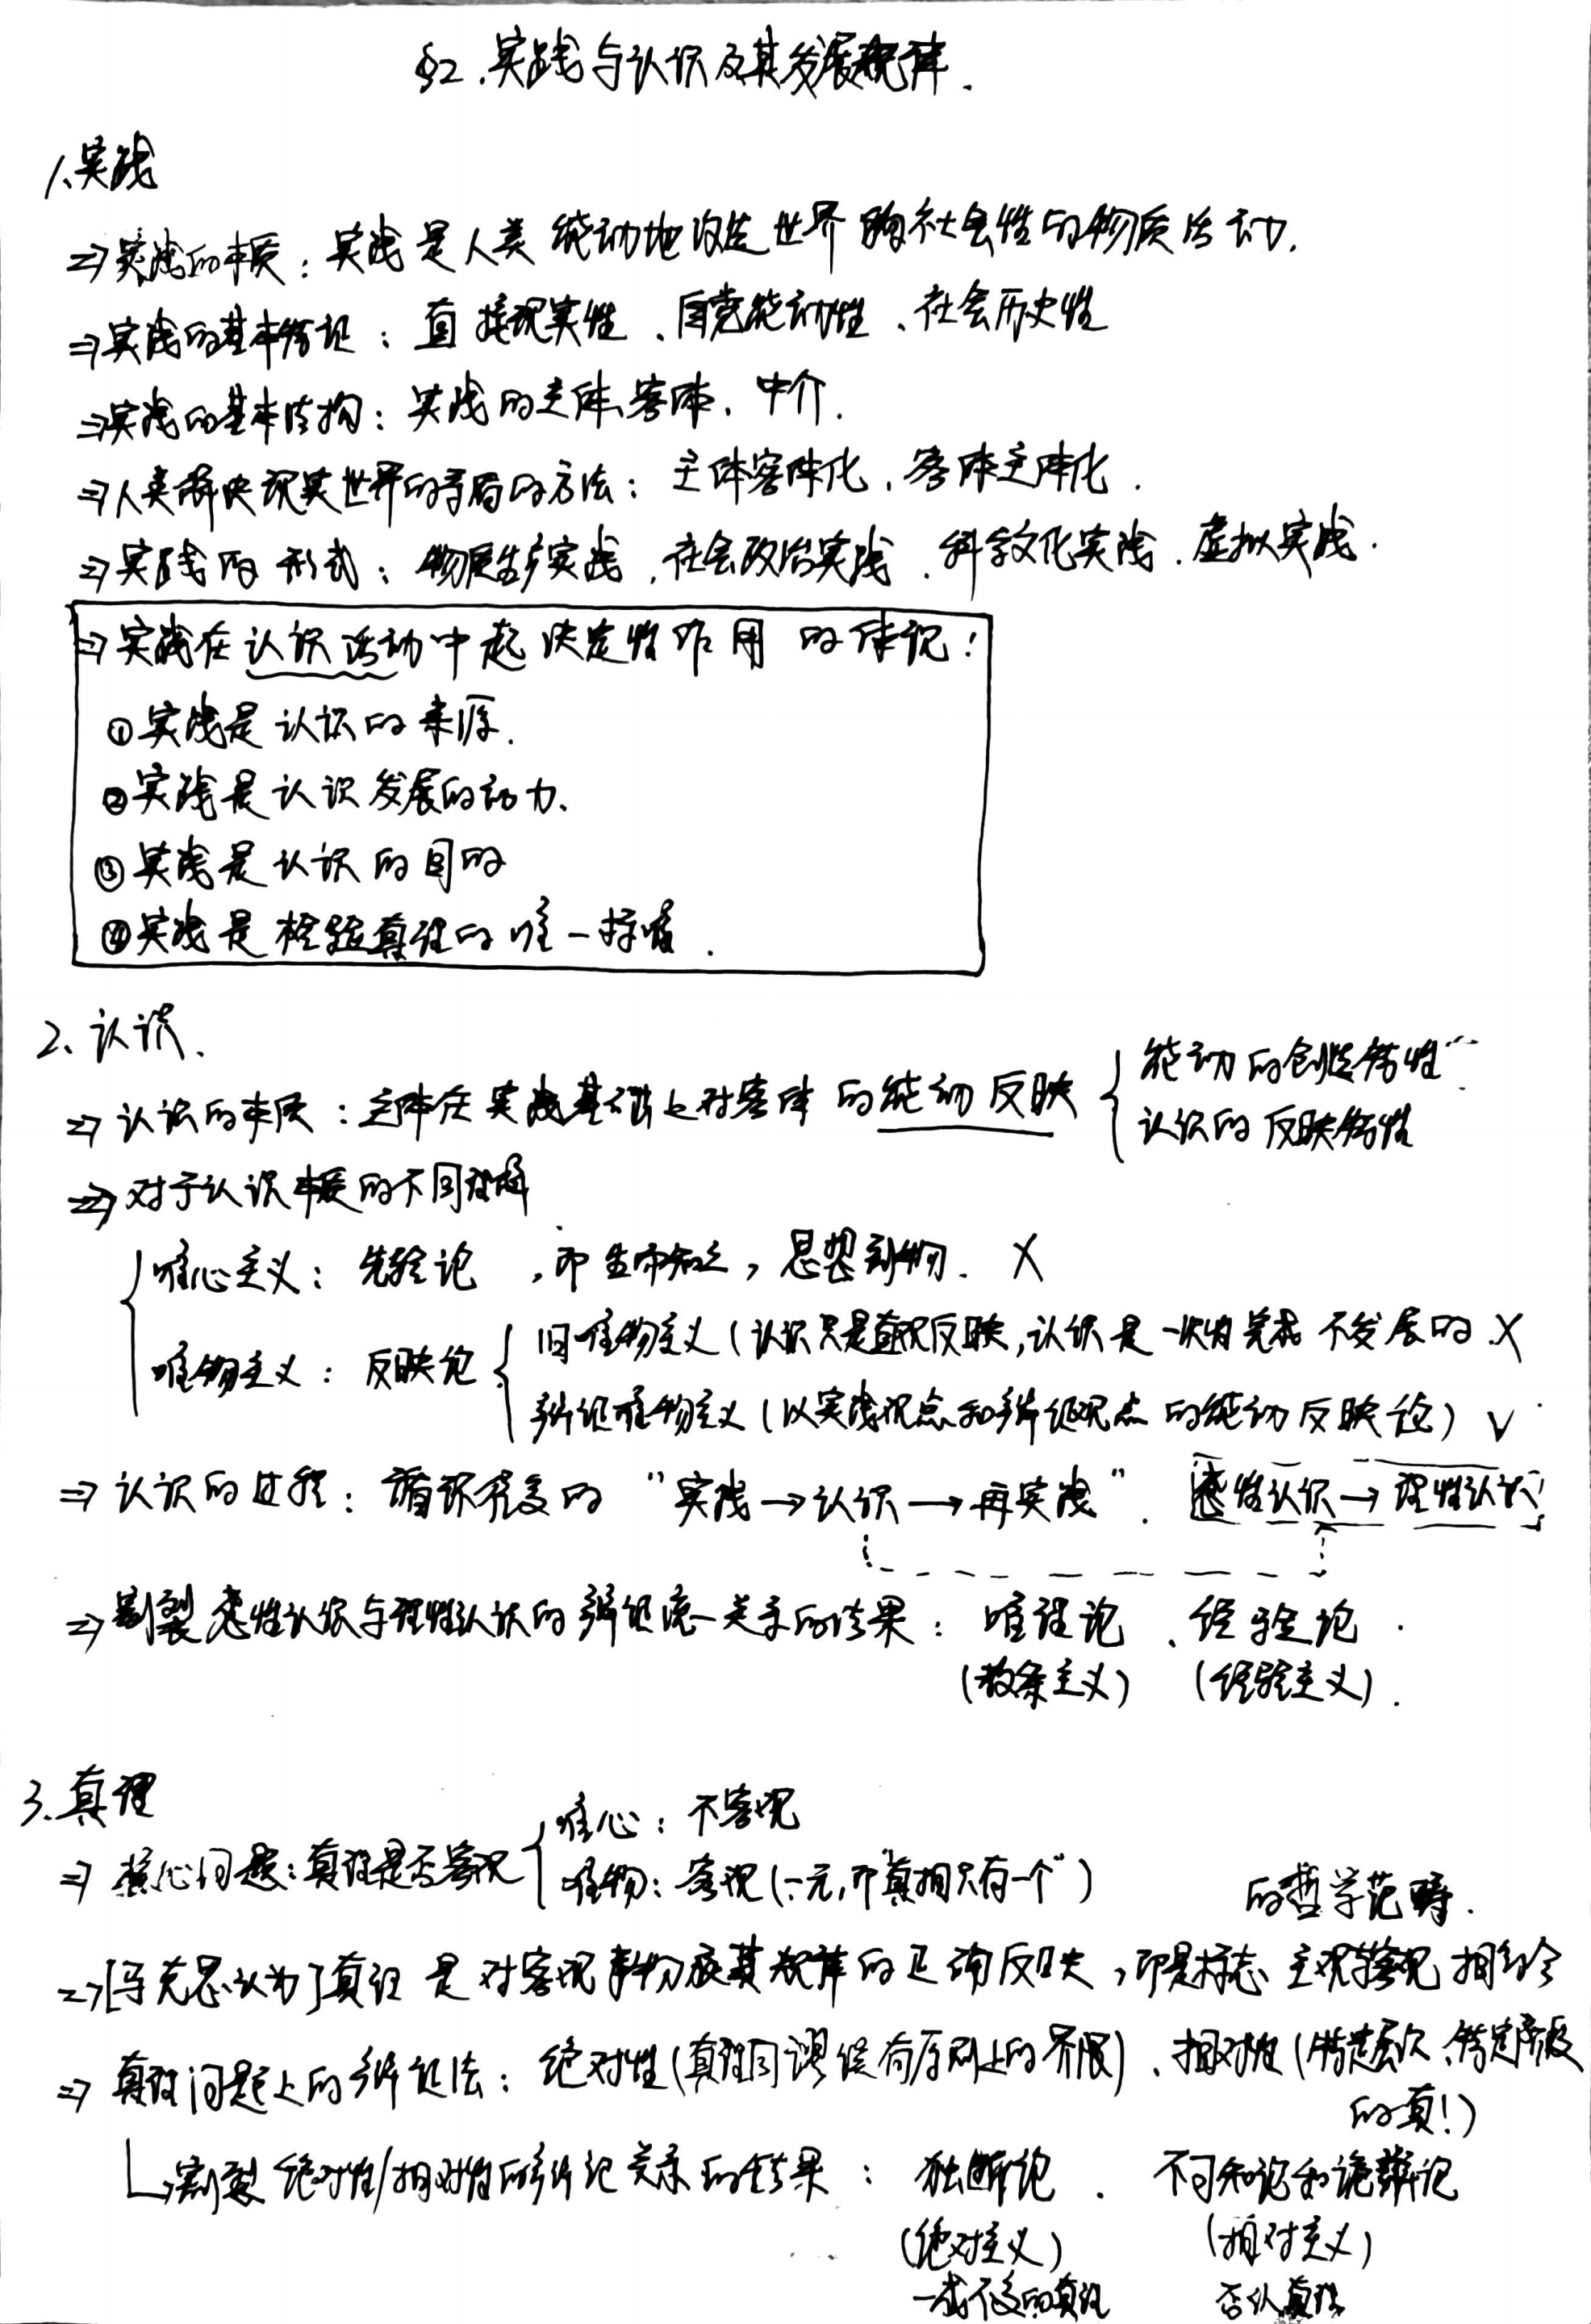 §2.实践与认识及其发展规律.
1、实践
⇒实践的本质：实践是人类能动地改造世界的社会性的物质活动.
⇒实践的基本特征：直接现实性、自觉能动性、社会历史性
⇒实践的基本结构：实践的主体、客体、中介.
⇒人类解决现实世界的矛盾的方法：主体客体化、客体主体化.
⇒实践的形式：物质生产实践、社会政治实践、科学文化实践、虚拟实践.
⇒实践在认识活动中起决定性作用的体现：
①实践是认识的来源.
②实践是认识发展的动力.
③实践是认识的目的
④实践是检验真理的唯一标准.
2、认识.
⇒认识的本质：主体在实践基础上对客体的能动反映
能动的创造特性
认识的反映特性
⇒对于认识本质的不同理解
唯心主义：先验论，即生而知之，思想到物. X
唯物主义：反映论
旧唯物主义(认识只是直观反映,认识是一次为完成不发展的.X
辩证唯物主义(以实践观点和辩证观点的能动反映论) √
⇒认识的过程：循环往复的"实践→认识→再实践". 感性认识→理性认识
⇒割裂感性认识与理性认识的辩证统一关系的结果：唯理论、经验论.
(教条主义) (经验主义).
3.真理
⇒核心问题：真理是否客观
唯心：不客观
唯物：客观(一元,即"真相只有一个")
⇒[马克思认为]真理是对客观事物及其规律的正确反映，即是标志主观客观相符合
的哲学范畴.
⇒真理问题上的辩证法：绝对性(真理同谬误有原则上的界限)、相对性(特定层次、特定阶段
的真!)
↳割裂绝对性/相对性的辩证关系的结果：独断论. 不可知论和诡辩论
(绝对主义) (相对主义)
一成不变的真理 否认真理